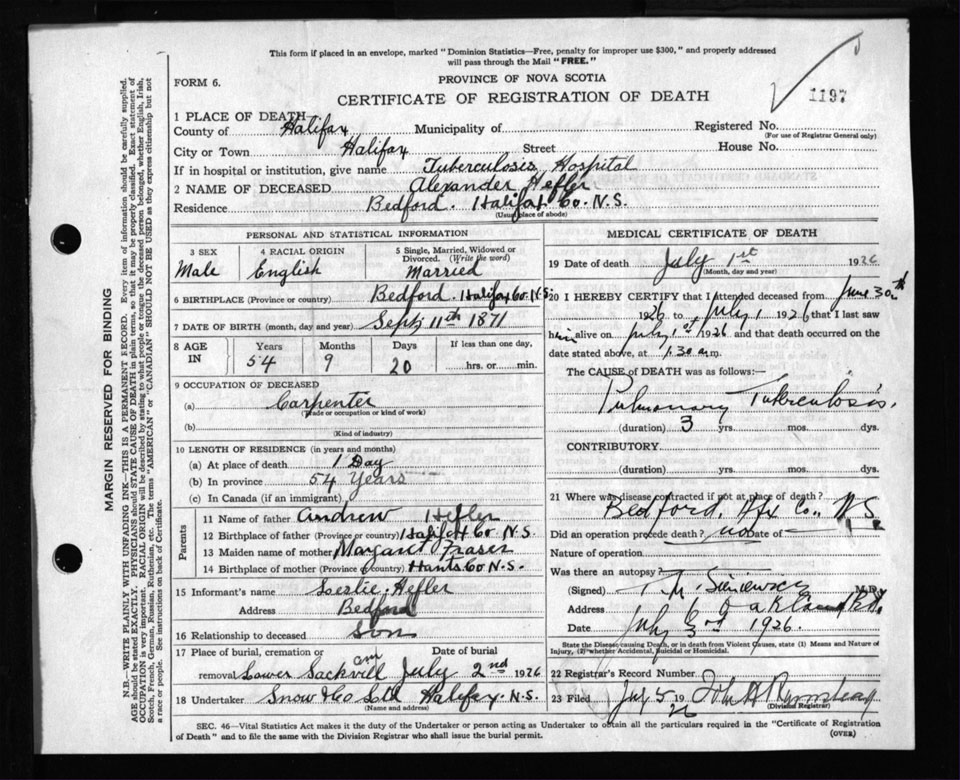 This form if placed in an envelope, marked "Dominion Statistics—Free, penalty for improper use $300," and properly addressed
will pass through the Mail "FREE."
FORM 6.
PROVINCE OF NOVA SCOTIA
CERTIFICATE OF REGISTRATION OF DEATH
1197
1 PLACE OF DEATH
County of Halifax Municipality of Registered No.
(For use of Registrar General only)
City or Town Halifax Street House No.
If in hospital or institution, give name Tuberculosis Hospital
2 NAME OF DECEASED Alexander Hefler
Residence Bedford. Halifax Co. N.S.
(Usual place of abode)
PERSONAL AND STATISTICAL INFORMATION
3 SEX 4 RACIAL ORIGIN 5 Single, Married, Widowed or
Divorced. (Write the word)
Male English Married
6 BIRTHPLACE (Province or country) Bedford. Halifax Co. N.S.
7 DATE OF BIRTH (month, day and year) Sept 11th 1871
8 AGE IN Years Months Days If less than one day,
54 9 20 hrs. or min.
9 OCCUPATION OF DECEASED
(a) Carpenter
(Trade or occupation or kind of work)
(b)
(Kind of industry)
10 LENGTH OF RESIDENCE (in years and months)
(a) At place of death 1 Day
(b) In province 54 Years
(c) In Canada (if an immigrant)
Parents
11 Name of father Andrew Hefler
12 Birthplace of father (Province or country) Halifax Co. N.S.
13 Maiden name of mother Margaret Fraser
14 Birthplace of mother (Province or country) Hants Co N.S.
15 Informant's name Leslie Hefler
Address Bedford
16 Relationship to deceased Son
17 Place of burial, cremation or Date of burial
removal Lower Sackvill July 2nd 1926
18 Undertaker Snow & Co Ltd Halifax N.S.
(Name and address)
MEDICAL CERTIFICATE OF DEATH
19 Date of death July 1st 1926
(Month, day and year)
20 I HEREBY CERTIFY that I attended deceased from June 30th
1926 to July 1 1926 that I last saw
him alive on July 1st 1926 and that death occurred on the
date stated above, at 1.30 a.m.
The CAUSE OF DEATH was as follows:—
Pulmonary Tuberculosis.
(duration) 3 yrs. mos. dys.
CONTRIBUTORY.
(duration) yrs. mos. dys.
21 Where was disease contracted if not at place of death?
Bedford, Hfx Co., N.S.
Did an operation precede death? no Date of
Nature of operation
Was there an autopsy?
(Signed) M.D.
Address
Date July 3rd 1926
State the Disease causing Death, or in Death from Violent Causes, state (1) Means and Nature of
Injury, (2) whether Accidental, Suicidal or Homicidal.
22 Registrar's Record Number
23 Filed July 5 1926 John A
(Division Registrar)
SEC. 46—Vital Statistics Act makes it the duty of the Undertaker or person acting as Undertaker to obtain all the particulars required in the "Certificate of Registration
of Death" and to file the same with the Division Registrar who shall issue the burial permit.
(OVER)
MARGIN RESERVED FOR BINDING
N.B.—WRITE PLAINLY WITH UNFADING INK—THIS IS A PERMANENT RECORD. Every item of information should be carefully supplied.
AGE should be stated EXACTLY. PHYSICIANS should STATE CAUSE OF DEATH in plain terms, so that it may be properly classified. Exact statement of
OCCUPATION is very important. RACIAL ORIGIN will be described by stating to what people or tongue the deceased person belonged, whether English, Irish,
Scotch, French, German, Russian, Ruthenian, etc. The terms "AMERICAN" or "CANADIAN" SHOULD NOT BE USED as they express citizenship but not
a race or people. See instructions on back of Certificate.